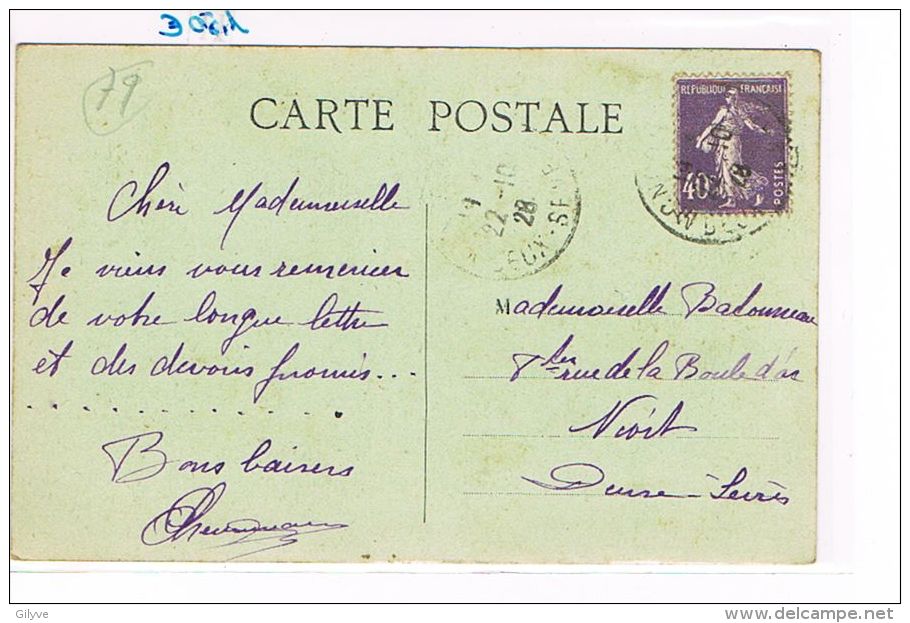 1,50 €
79
CARTE POSTALE
REPUBLIQUE FRANÇAISE
40
POSTES
22-10
28
Chère Mademoiselle
Je viens vous remercier
de votre longue lettre
et des devoirs promis...
Bons baisers
Mademoiselle Badonneau
rue de la Boule d'or
Niort
Deux-Sèvres
Gilyve
www.delcampe.net